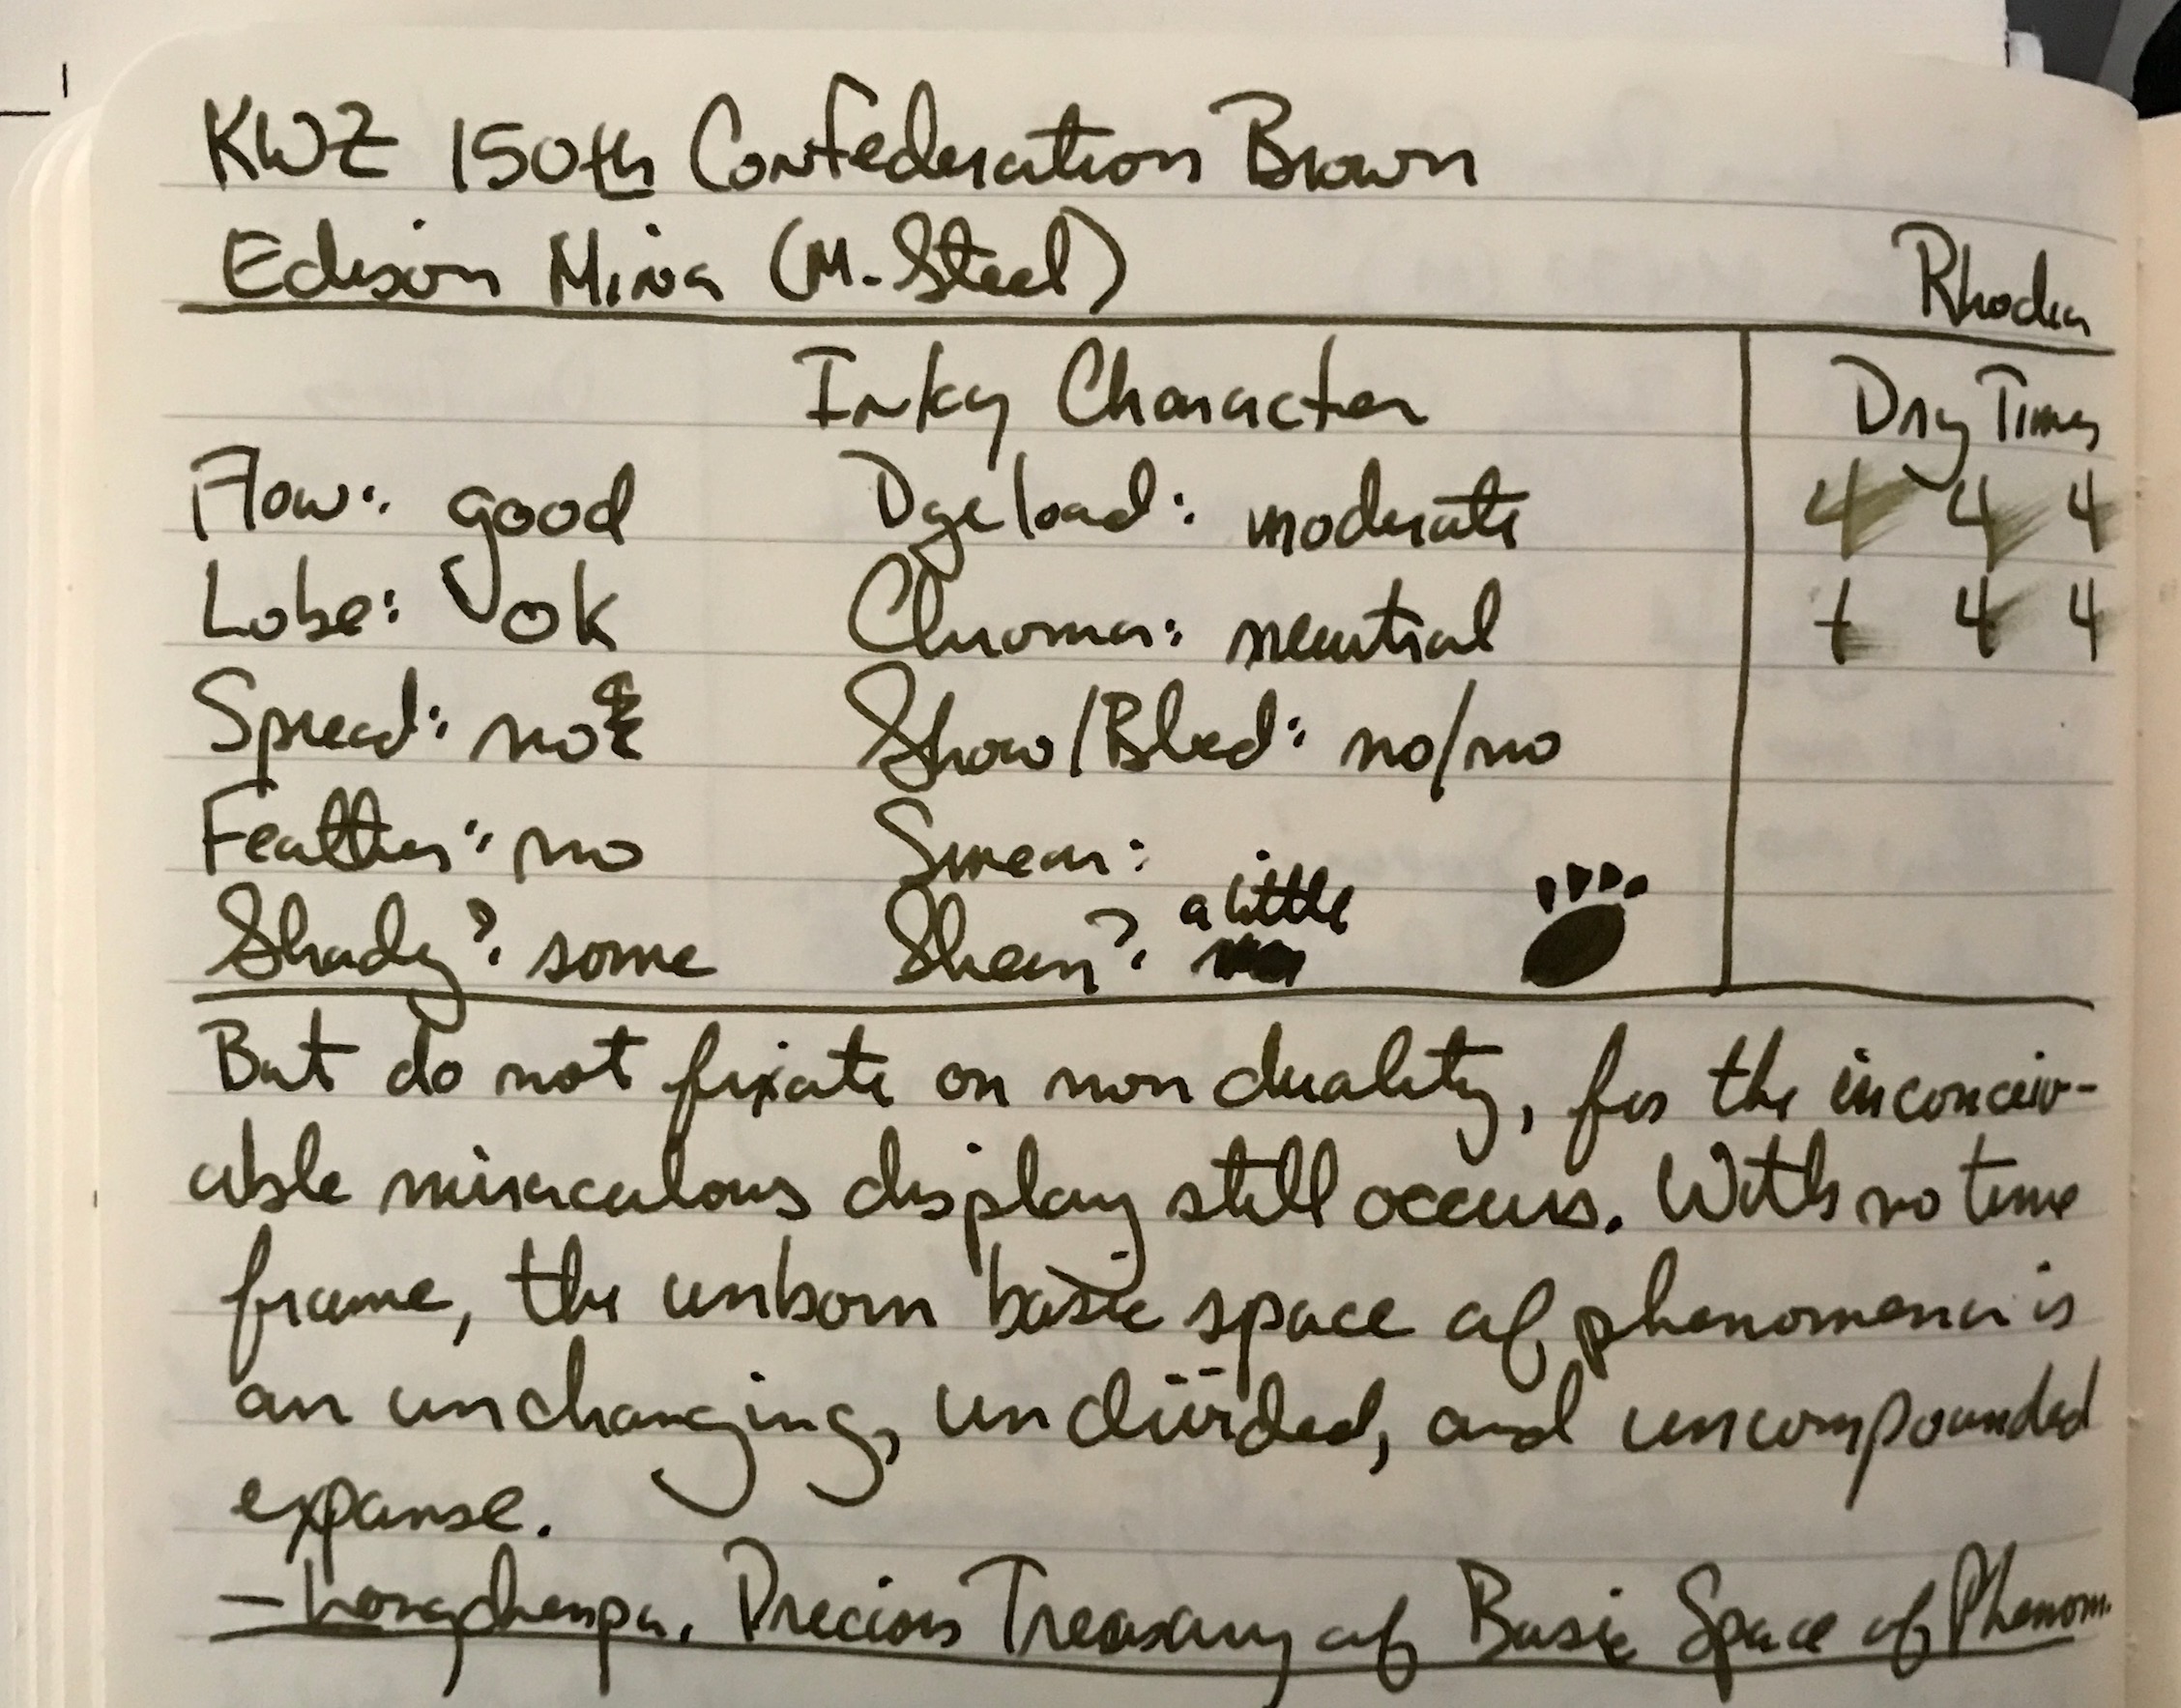 KWZ 150th Confederation Brown
Edison Mina (M. Steel)
Rhodia
Inky Character
Dry Times
Flow: good
Dye load: moderate
4 4 4
Lube: ok
Chroma: neutral
4 4
Spread: no
Show/Bleed: no/no
Feather: no
Smear:
Shady?: some
Sheen?: a little
But do not fixate on non duality, for the inconceiv-
able miraculous display still occurs. With no time
frame, the unborn basic space of phenomena is
an unchanging, undivided, and uncompounded
expanse.
- Longchenpa, Precious Treasury of Basic Space of Phenom.